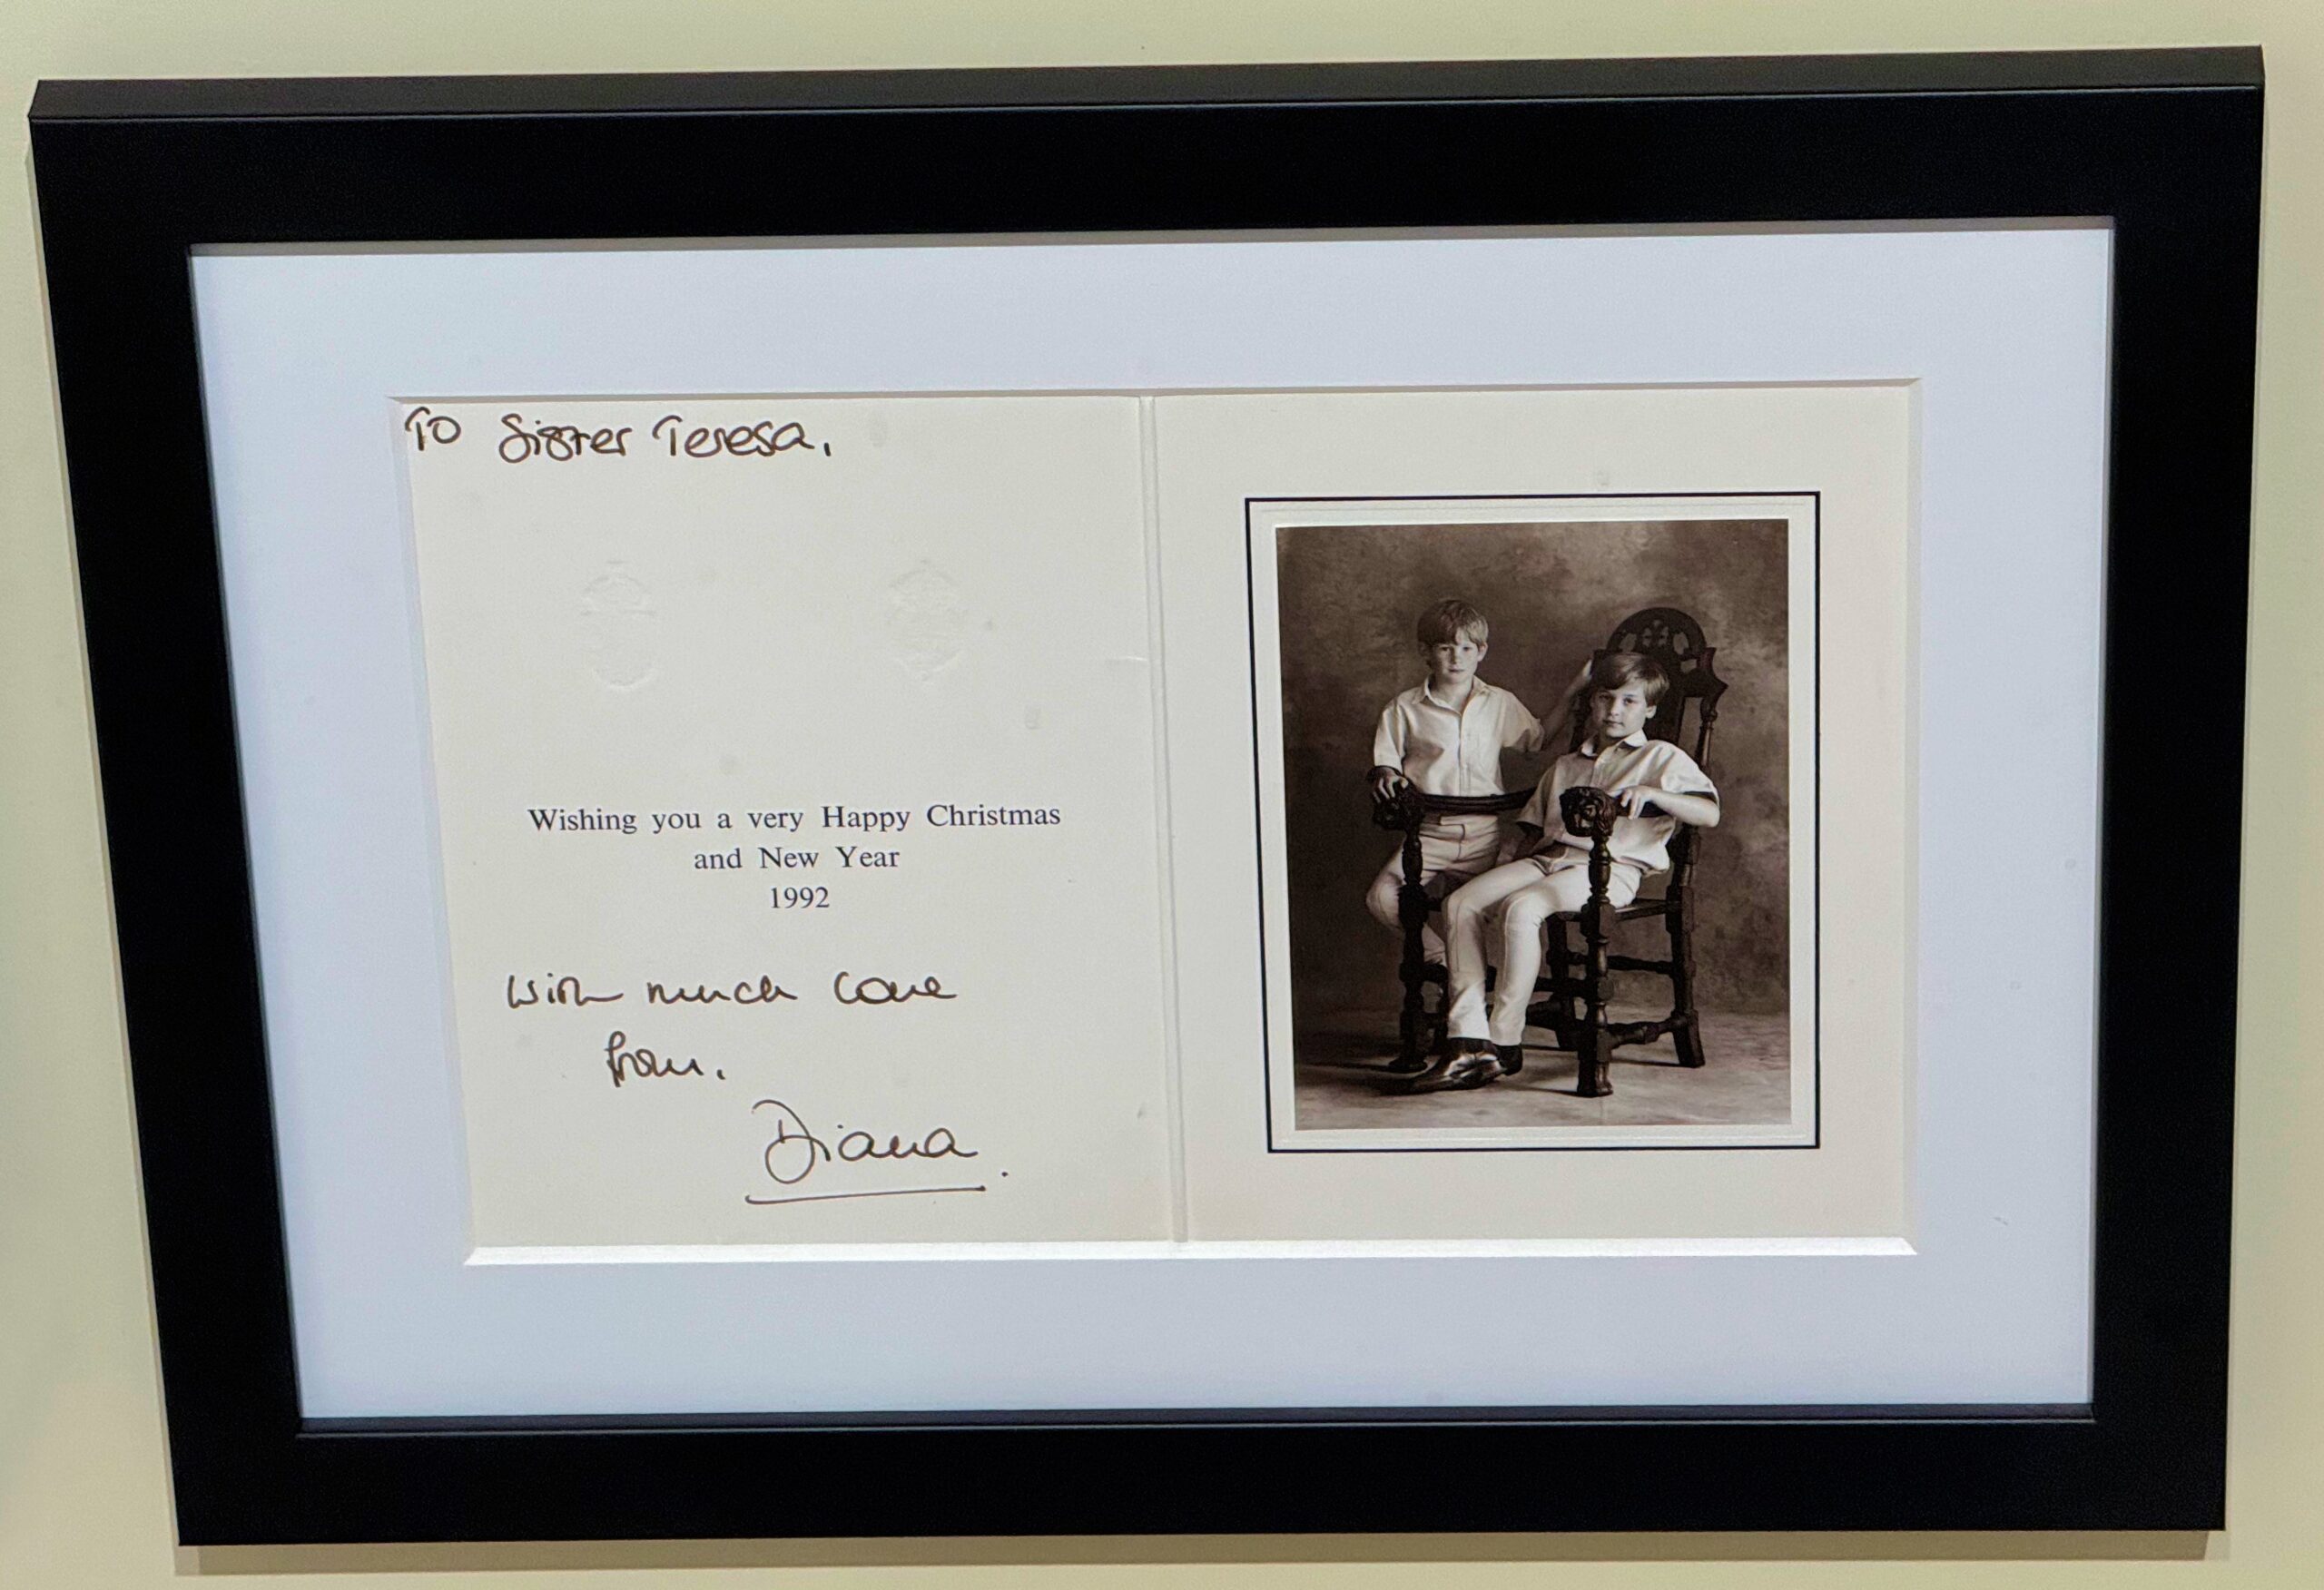 To Sister Teresa,
Wishing you a very Happy Christmas
and New Year
1992
With much love
from.
Diana.